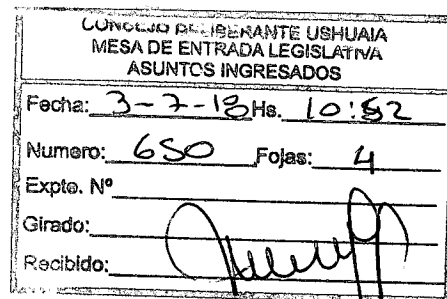 CONCEJO DELIBERANTE USHUAIA
MESA DE ENTRADA LEGISLATIVA
ASUNTOS INGRESADOS
Fecha: 3-7-18 Hs. 10:52
Numero: 650 Fojas: 4
Expte. Nº
Girado:
Recibido: